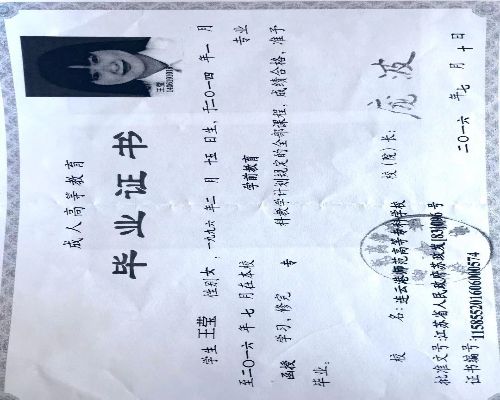 成人高等教育
毕业证书
学生 王莹 性别 女 ，一九九六年二月 日生，于二〇一四年一月
至二〇一六年七月在本校 学前教育 专业
函授 学习，修完 专 科教学计划规定的全部课程，成绩合格，准予
毕业。
王莹
校 名：连云港师范高等专科学校 校（院）长：
批准文号：江苏省人民政府苏政发
证书编号：115885201606000574 二〇一六年七月十日